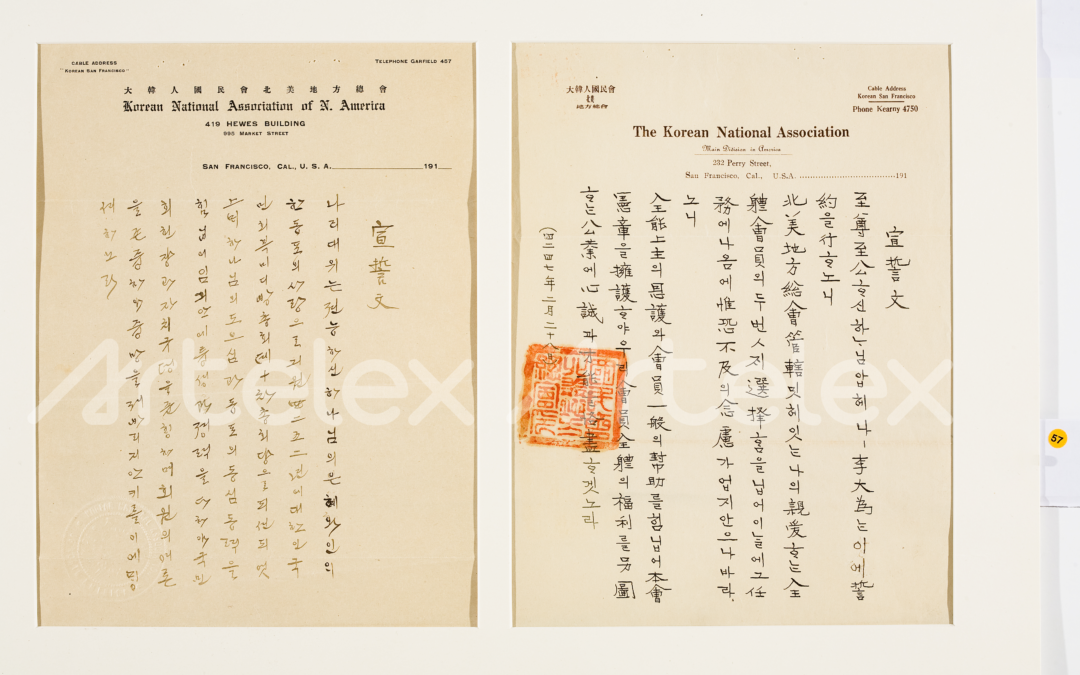 CABLE ADDRESS
"KOREAN SAN FRANCISCO"
TELEPHONE GARFIELD 457
大韓人國民會北美地方總會
Korean National Association of N. America
419 HEWES BUILDING
995 MARKET STREET
SAN FRANCISCO, CAL., U. S. A. 191
宣誓文
나리대위는전능하신하나님의은혜와인의
한동포의사랑으로긔원四二五二년에대한인국
민회북미디방총회뎨十차총회댱으로피선되엿
느며하나님의도으심과동포의동심동력을
힘닙어임긔안에튱셩과졍력을다하야국민
회헌쟝과자치규뎡을준행하며회원의여론
을존즁하야즁망을져바리지안키를이에맹
셔하노라
大韓人國民會
地方總會
Cable Address
Korean San Francisco
Phone Kearny 4750
The Korean National Association
Main Division in America
232 Perry Street,
San Francisco, Cal., U.S.A. 191
宣誓文
至尊至公ᄒᆞ신하ᄂᆞ님압헤나ㅣ李大為는이에誓
約을行ᄒᆞ노니
北美地方総會管轄밋헤잇는나의親愛ᄒᆞ는全
軆會員의두번ㅅ재選擇홈을닙어이늘에그任
務에나옴에惟恐不及의念慮가업지안으나바라
노니
全能上主의恩護와會員一般의幇助를힘닙어本會
憲章을擁護ᄒᆞ야우리會員全軆의福利를另圖
ᄒᆞ는公業에心誠과才能을竭盡ᄒᆞ겟노라
(四二四七年二月二十八日)
57
Artelex Artelex